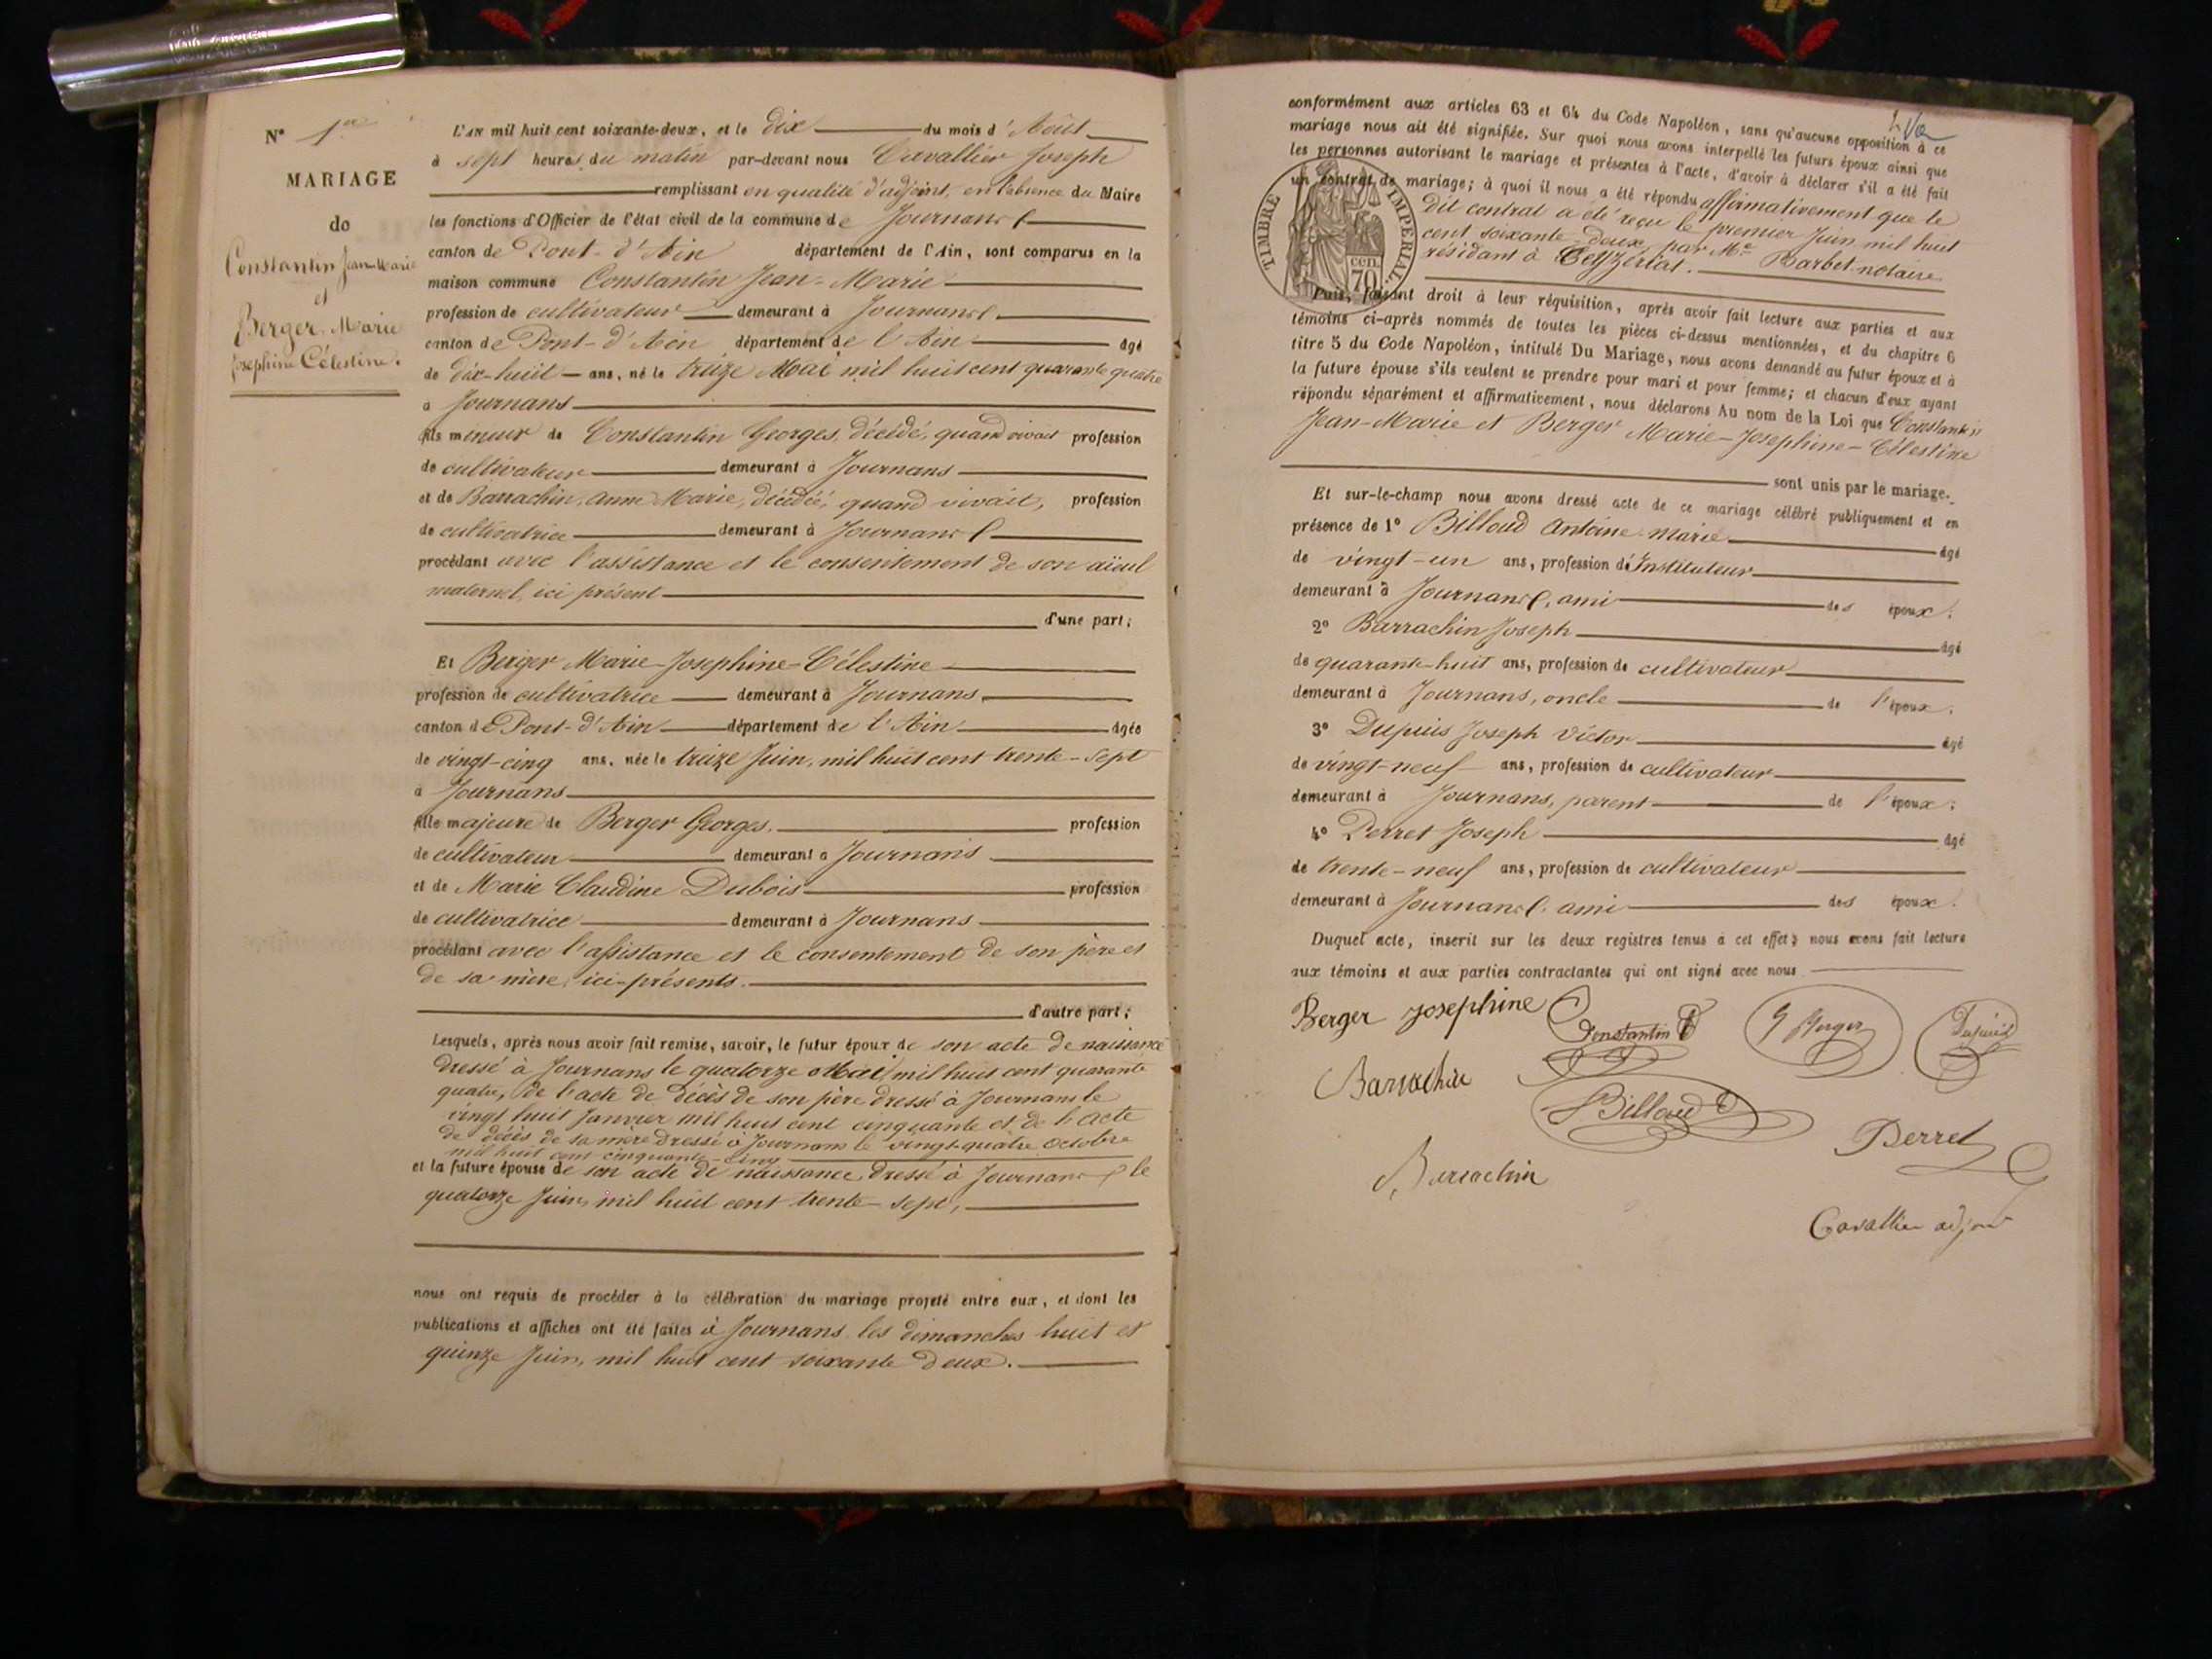 N° 1er
MARIAGE
de
Constantin Jean-Marie
et
Berger Marie
Josephine Célestine.
L'AN mil huit cent soixante-deux, et le dix du mois d'Août
à sept heures du matin par-devant nous Cavallier Joseph
remplissant en qualité d'adjoint, en l'absence du Maire
les fonctions d'Officier de l'état civil de la commune de Journans
canton de Pont-d'Ain département de l'Ain, sont comparus en la
maison commune Constantin Jean-Marie
profession de cultivateur demeurant à Journans
canton de Pont-d'Ain département de l'Ain âgé
de dix-huit ans, né le treize Mai mil huit cent quarante quatre
à Journans
fils mineur de Constantin Georges, décédé, quand vivait profession
de cultivateur demeurant à Journans
et de Barrachin, Anne Marie, décédée, quand vivait, profession
de cultivatrice demeurant à Journans
procédant avec l'assistance et le consentement de son aïeul
maternel, ici présent
d'une part;
Et Berger Marie-Josephine-Célestine
profession de cultivatrice demeurant à Journans,
canton de Pont-d'Ain département de l'Ain âgée
de vingt-cinq ans, née le treize Juin, mil huit cent trente-sept
à Journans
fille majeure de Berger Georges, profession
de cultivateur demeurant à Journans
et de Marie Claudine Dubois profession
de cultivatrice demeurant à Journans
procédant avec l'assistance et le consentement de son père et
de sa mère, ici-présents.
d'autre part;
Lesquels, après nous avoir fait remise, savoir, le futur époux de son acte de naissance
dressé à Journans le quatorze Mai, mil huit cent quarante
quatre, de l'acte de décès de son père dressé à Journans le
vingt huit Janvier mil huit cent cinquante et de l'acte
de décès de sa mère dressé à Journans le vingt-quatre octobre
mil huit cent cinquante-cinq
et la future épouse de son acte de naissance, dressé à Journans le
quatorze Juin, mil huit cent trente-sept,
nous ont requis de procéder à la célébration du mariage projeté entre eux, et dont les
publications et affiches ont été faites à Journans les dimanches huit et
quinze Juin, mil huit cent soixante deux.
conformément aux articles 63 et 64 du Code Napoléon, sans qu'aucune opposition à ce
mariage nous ait été signifiée. Sur quoi nous avons interpellé les futurs époux ainsi que
les personnes autorisant le mariage et présentes à l'acte, d'avoir à déclarer s'il a été fait
un contrat de mariage; à quoi il nous a été répondu affirmativement que le
dit contrat a été reçu le premier Juin mil huit
cent soixante-deux, par Me Barbet notaire
résidant à Ceyzériat.
TIMBRE IMPERIAL
70 cen.
Puis, faisant droit à leur réquisition, après avoir fait lecture aux parties et aux
témoins ci-après nommés de toutes les pièces ci-dessus mentionnées, et du chapitre 6
titre 5 du Code Napoléon, intitulé Du Mariage, nous avons demandé au futur époux et à
la future épouse s'ils veulent se prendre pour mari et pour femme; et chacun d'eux ayant
répondu séparément et affirmativement, nous déclarons Au nom de la Loi que Constantin
Jean-Marie et Berger Marie-Josephine-Célestine
sont unis par le mariage.
Et sur-le-champ nous avons dressé acte de ce mariage célébré publiquement et en
présence de 1° Billoud Antoine-marie âgé
de vingt-un ans, profession d'Instituteur
demeurant à Journans, ami des époux;
2° Barrachin Joseph âgé
de quarante-huit ans, profession de cultivateur
demeurant à Journans, oncle de l'époux;
3° Dupuis Joseph Victor âgé
de vingt-neuf ans, profession de cultivateur
demeurant à Journans, parent de l'époux;
4° Perret Joseph âgé
de trente-neuf ans, profession de cultivateur
demeurant à Journans, ami des époux.
Duquel acte, inscrit sur les deux registres tenus à cet effet, nous avons fait lecture
aux témoins et aux parties contractantes qui ont signé avec nous
Berger Josephine Constantin G Berger Dupuis
Barrachin
Billoud
Perret
Barrachin
Cavallier adjoint